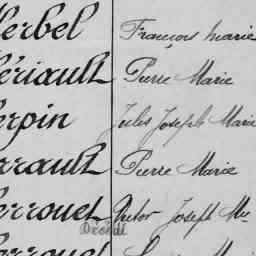 Herbel François Marie
Hériault Pierre Marie
Herpin Jules Joseph Marie
Herrault Pierre Marie
Herrouet Victor Joseph
Décédé
Marie